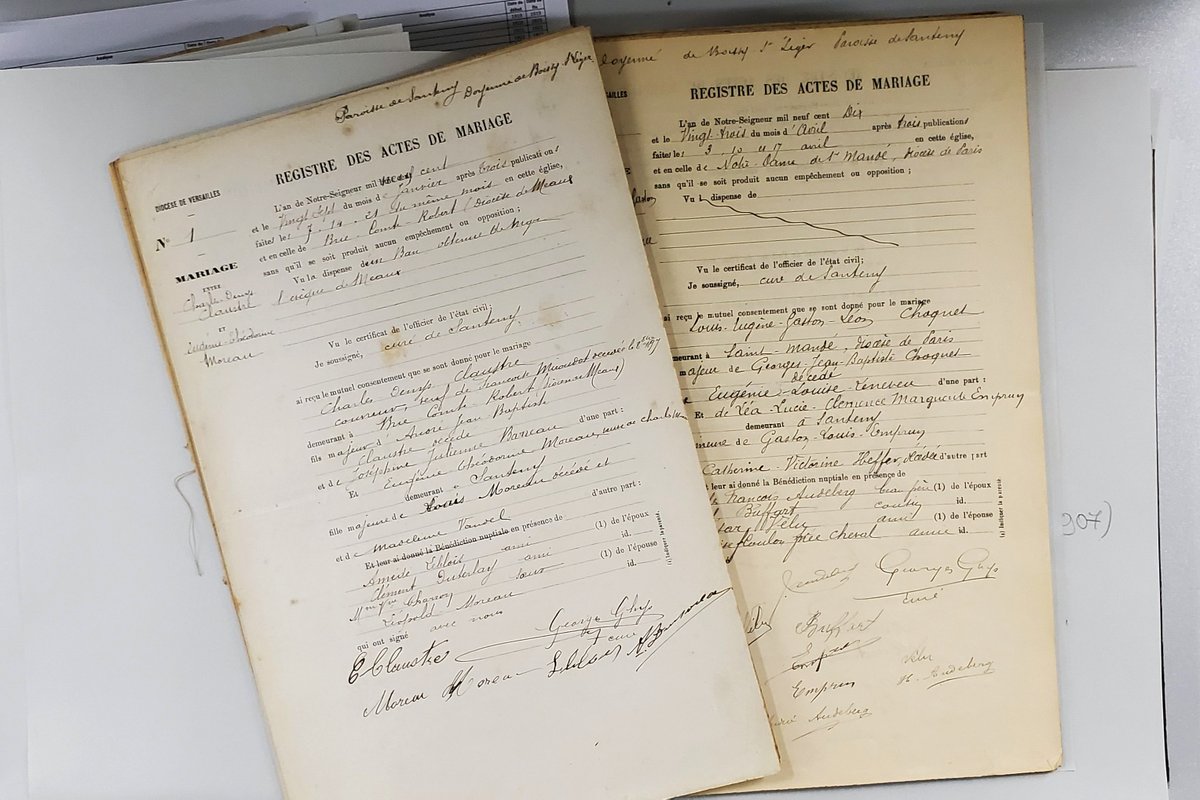 Paroisse de Santeny Doyenné de Boissy St Léger
REGISTRE DES ACTES DE MARIAGE
DIOCÈSE DE VERSAILLES
N° 1
MARIAGE
ENTRE
Charles Denys
Claustre
ET
Eugénie Théodorine
Moreau
L'an de Notre-Seigneur mil neuf cent
et le Vingt Sept du mois de Janvier après trois publications
faites les 7 . 14 . 21 du même mois en cette église,
et en celle de Brie Comte Robert (Diocèse de Meaux
sans qu'il se soit produit aucun empêchement ou opposition ;
Vu la dispense d'un Ban obtenue de
l'évêque de Meaux
Vu le certificat de l'officier de l'état civil ;
Je soussigné, curé de Santeny
ai reçu le mutuel consentement que se sont donné pour le mariage
Charles Denys Claustre
couvreur, veuf de Françoise décédée le
demeurant à Brie Comte Robert (diocèse Meaux)
fils majeur d'André Jean Baptiste
Claustre décédé
et de Joséphine Julienne Baneau d'une part :
Et Eugénie Théodorine Moreau, veuve de Charles
demeurant à Santeny
fille majeure de Louis Moreau décédé et
et de Madeleine d'autre part :
Et leur ai donné la Bénédiction nuptiale en présence de
Amédé Lebloit ami (1) de l'époux
Clément ami id.
Charron (1) de l'épouse
Léopold Moreau id.
(1) Indiquer la parenté.
qui ont signé avec nous
Georges Ghys
curé
C Claustre
Moreau Moreau
Doyenné de Boissy St Léger Paroisse de Santeny
VERSAILLES
REGISTRE DES ACTES DE MARIAGE
L'an de Notre-Seigneur mil neuf cent Dix
et le Vingt-trois du mois d'Avril après trois publications
faites les 3 10 et 17 avril en cette église,
et en celle de Notre-Dame de St Mandé, Diocèse de Paris
sans qu'il se soit produit aucun empêchement ou opposition ;
Vu l dispense de
Vu le certificat de l'officier de l'état civil ;
Je soussigné, curé de Santeny
ai reçu le mutuel consentement que se sont donné pour le mariage
Louis-Eugène-Gaston-Léon Choquet
demeurant à Saint-Mandé, Diocèse de Paris
majeur de Georges-Jean-Baptiste Choquet
décédé
Eugénie-Louise-Léneveu d'une part :
Et de Léa-Lucie-Clémence Marguerite Emprun
demeurant à Santeny
mineure de Gaston-Louis-Emprun
Catherine-Victorine Heffer, décédée d'autre part
et leur ai donné la Bénédiction nuptiale en présence de
François Audeberg beau-père (1) de l'époux
Buffart cousin id.
Vélu ami (1) de l'épouse
née Cheval amie id.
(1) Indiquer la parenté.
Georges Ghys
curé
Buffart
Emprun
Vélu
Audeberg
Audeberg
907)